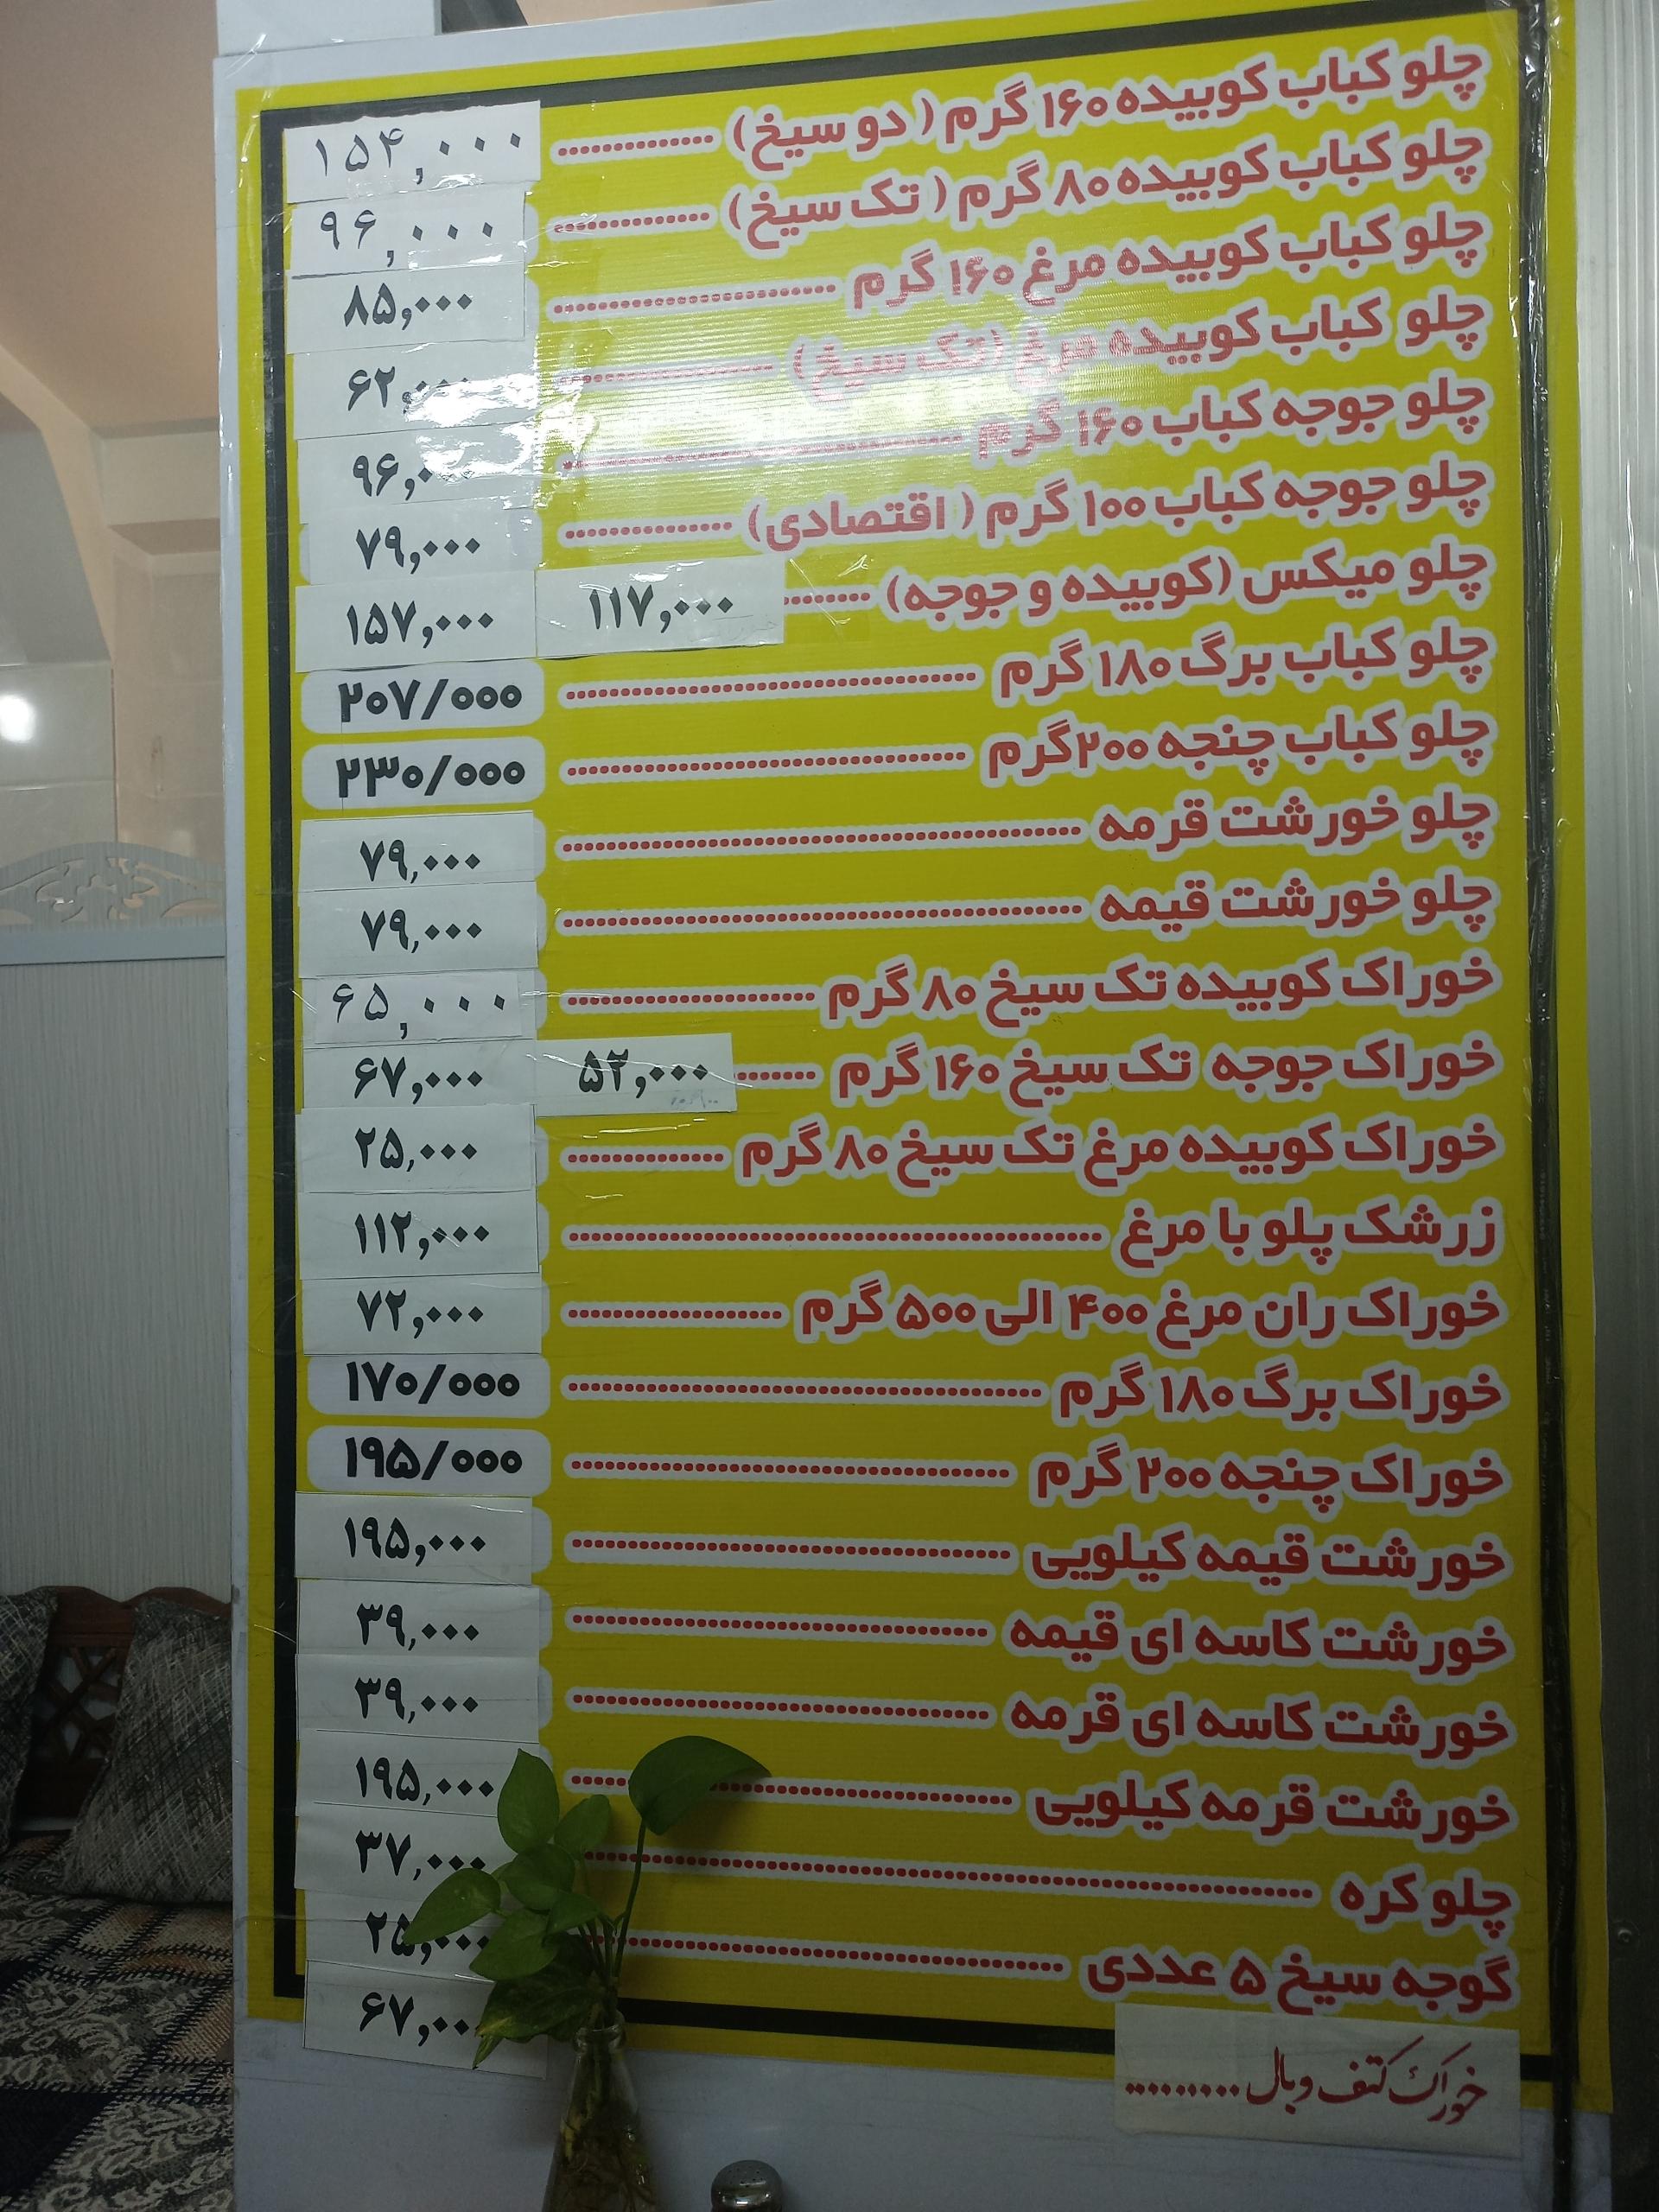 چلو کباب کوبیده ۱۶۰ گرم ( دو سیخ) .............. ۱۵۴,۰۰۰
چلو کباب کوبیده ۸۰ گرم ( تک سیخ) .............. ۹۶,۰۰۰
چلو کباب کوبیده مرغ ۱۶۰ گرم .............. ۸۵,۰۰۰
چلو کباب کوبیده مرغ (تک سیخ) .............. ۶۲,۰۰۰
چلو جوجه کباب ۱۶۰ گرم .............. ۹۶,۰۰۰
چلو جوجه کباب ۱۰۰ گرم ( اقتصادی) .............. ۷۹,۰۰۰
چلو میکس (کوبیده و جوجه) ........ ۱۱۷,۰۰۰ ۱۵۷,۰۰۰
چلو کباب برگ ۱۸۰ گرم .............. ۲۰۷/۰۰۰
چلو کباب چنجه ۲۰۰گرم .............. ۲۳۰/۰۰۰
چلو خورشت قرمه .............. ۷۹,۰۰۰
چلو خورشت قیمه .............. ۷۹,۰۰۰
خوراک کوبیده تک سیخ ۸۰ گرم .............. ۶۵,۰۰۰
خوراک جوجه تک سیخ ۱۶۰ گرم ........ ۵۲,۰۰۰ ۶۷,۰۰۰
خوراک کوبیده مرغ تک سیخ ۸۰ گرم .............. ۲۵,۰۰۰
زرشک پلو با مرغ .............. ۱۱۲,۰۰۰
خوراک ران مرغ ۴۰۰ الی ۵۰۰ گرم .............. ۷۲,۰۰۰
خوراک برگ ۱۸۰ گرم .............. ۱۷۰/۰۰۰
خوراک چنجه ۲۰۰ گرم .............. ۱۹۵/۰۰۰
خورشت قیمه کیلویی .............. ۱۹۵,۰۰۰
خورشت کاسه ای قیمه .............. ۳۹,۰۰۰
خورشت کاسه ای قرمه .............. ۳۹,۰۰۰
خورشت قرمه کیلویی .............. ۱۹۵,۰۰۰
چلو کره .............. ۳۷,۰۰۰
گوجه سیخ ۵ عددی .............. ۲۵,۰۰۰
خوراک کتف و بال .......... ۶۷,۰۰۰